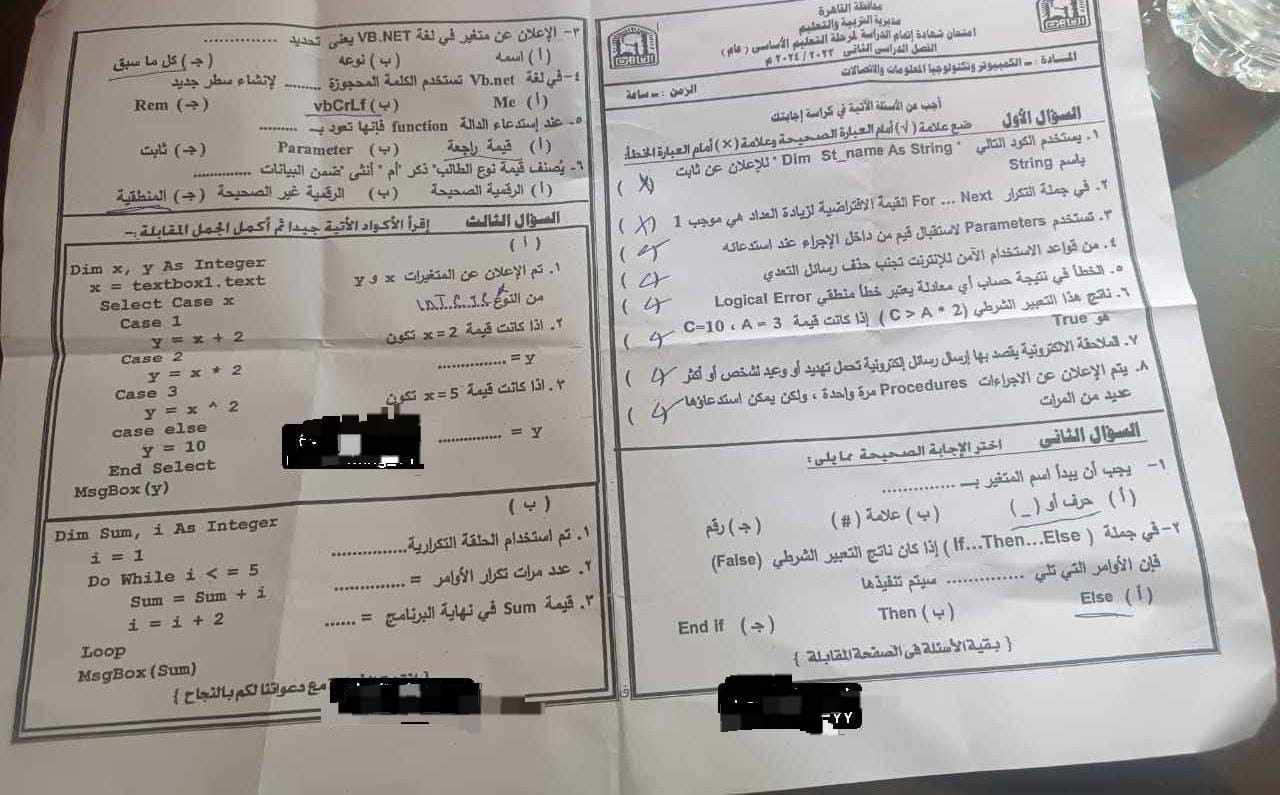 محافظة القاهرة
مديرية التربية والتعليم
امتحان شهادة إتمام الدراسة لمرحلة التعليم الأساسى ( عام )
الفصل الدراسى الثانى ٢٠٢٣ / ٢٠٢٤ م
المادة : ـ الكمبيوتر وتكنولوجيا المعلومات والاتصالات
الزمن : ـ ساعة
أجب عن الأسئلة الآتية في كراسة إجابتك
السؤال الأول ضع علامة (√) أمام العبارة الصحيحة وعلامة (×) أمام العبارة الخطأ:
١. يستخدم الكود التالي " Dim St_name As String " للإعلان عن ثابت
باسم String ( X )
٢. في جملة التكرار For ... Next القيمة الافتراضية لزيادة العداد هي موجب 1 ( X )
٣. تستخدم Parameters لاستقبال قيم من داخل الإجراء عند استدعائه ( )
٤. من قواعد الاستخدام الآمن للإنترنت تجنب حذف رسائل التعدي ( )
٥. الخطأ في نتيجة حساب أي معادلة يعتبر خطأ منطقي Logical Error ( )
٦. ناتج هذا التعبير الشرطي (C > A * 2) إذا كانت قيمة C=10 ، A = 3
هو True ( )
٧. الملاحقة الالكترونية يقصد بها إرسال رسائل إلكترونية تحمل تهديد أو وعيد لشخص أو أكثر ( )
٨. يتم الإعلان عن الاجراءات Procedures مرة واحدة ، ولكن يمكن استدعاؤها
عديد من المرات ( )
السؤال الثانى اختر الإجابة الصحيحة مما يلى :
١- يجب أن يبدأ اسم المتغير بـ ..............
( أ ) حرف أو (_) ( ب ) علامة (#) ( جـ ) رقم
٢- في جملة ( If...Then...Else ) إذا كان ناتج التعبير الشرطي (False)
فإن الأوامر التي تلي .............. سيتم تنفيذها
( أ ) Else ( ب ) Then ( جـ ) End if
{ بقية الأسئلة فى الصفحة المقابلة }
YY
٣- الإعلان عن متغير في لغة VB.NET يعنى تحديد ..............
( أ ) اسمه ( ب ) نوعه ( جـ ) كل ما سبق
٤- في لغة Vb.net تستخدم الكلمة المحجوزة ......... لإنشاء سطر جديد
( أ ) Me ( ب ) vbCrLf ( جـ ) Rem
٥- عند إستدعاء الدالة function فإنها تعود بـ .........
( أ ) قيمة راجعة ( ب ) Parameter ( جـ ) ثابت
٦- يُصنف قيمة نوع الطالب" ذكر "أم " أنثى "ضمن البيانات ..............
( أ ) الرقمية الصحيحة ( ب ) الرقمية غير الصحيحة ( جـ ) المنطقية
السؤال الثالث إقرأ الأكواد الأتية جيدا ثم أكمل الجمل المقابلة :ـ
( أ )
Dim x, y As Integer
x = textbox1.text
Select Case x
Case 1
y = x + 2
Case 2
y = x * 2
Case 3
y = x ^ 2
case else
y = 10
End Select
MsgBox(y)
١. تم الإعلان عن المتغيرات x و y
من النوع
٢. اذا كانت قيمة x = 2 تكون
y = ..............
٣. اذا كانت قيمة x = 5 تكون
y = ..............
( ب )
Dim Sum, i As Integer
i = 1
Do While i < = 5
Sum = Sum + i
i = i + 2
Loop
MsgBox(Sum)
١. تم استخدام الحلقة التكرارية..............
٢. عدد مرات تكرار الأوامر = ..............
٣. قيمة Sum في نهاية البرنامج = ......
مع دعواتنا لكم بالنجاح }